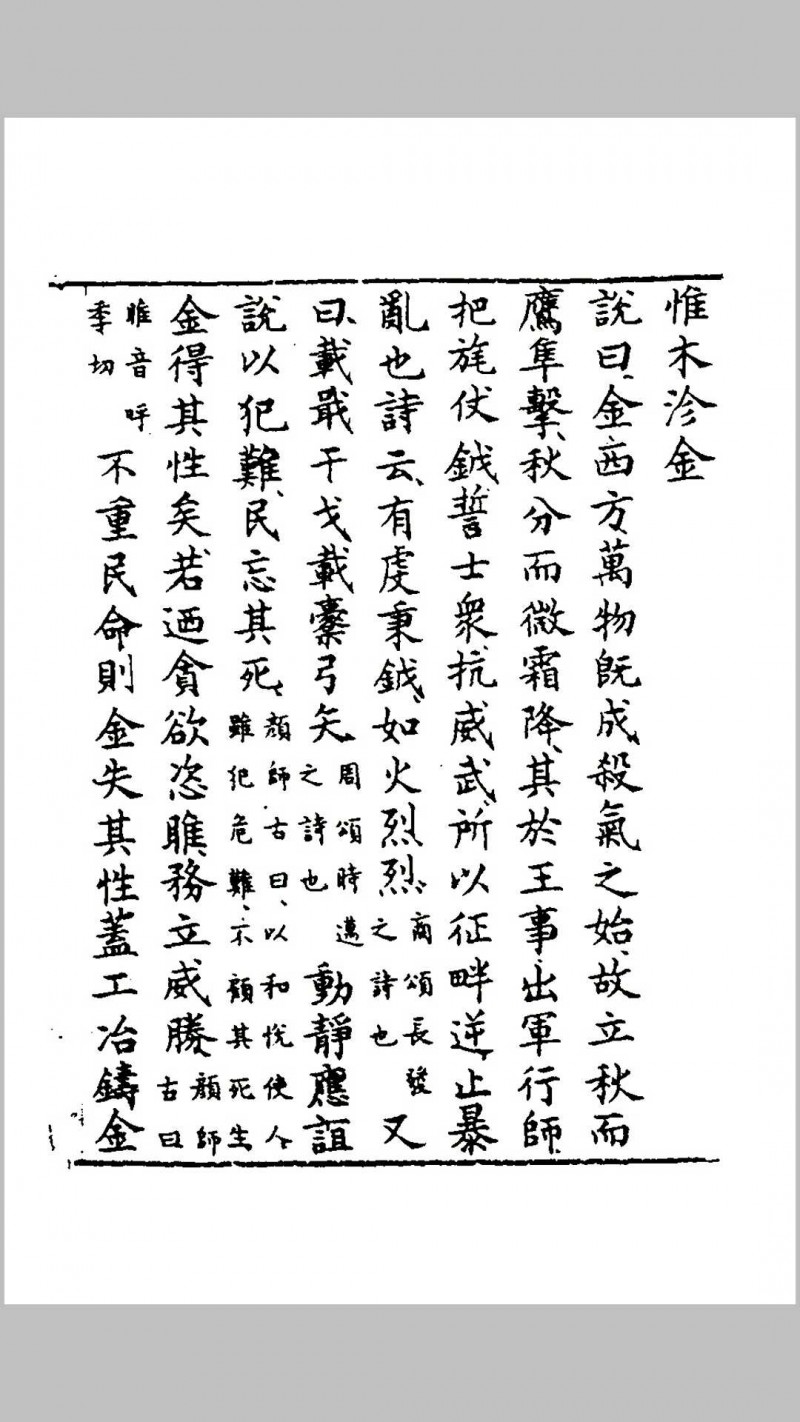 惟木沴金
說曰、金西方、萬物旣成、殺氣之始、故立秋而
鷹隼擊、秋分而微霜降、其於王事、出軍行師、
把旄伏鉞、誓士衆、抗威武、所以征畔逆、止暴
亂也、詩云、有虔秉鉞、如火烈烈、商頌長發之詩也又
曰、載戢干戈、載櫜弓矢、周頌時邁之詩也動靜應誼
說以犯難、民忘其死、顏師古曰、以和悅使人、雖犯危難、不顧其死生
金得其性矣、若迺貪欲恣睢、務立威勝、顏師古曰
睢音呼季切不重民命、則金失其性、蓋工冶鑄金